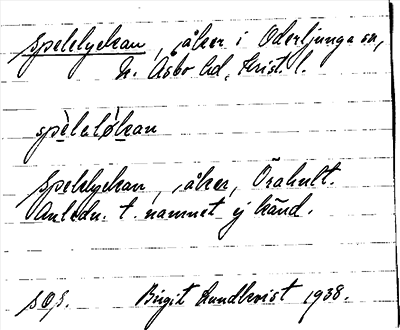 Spelelyckan, åker i Oderljunga sn,
N. Åsbo hd, Krist. l.
spèlelỳkan
Spelelyckan, åker, Örahult.
Anledn. t. namnet ej känd.
s.o.s. Birgit Lundkvist 1938.